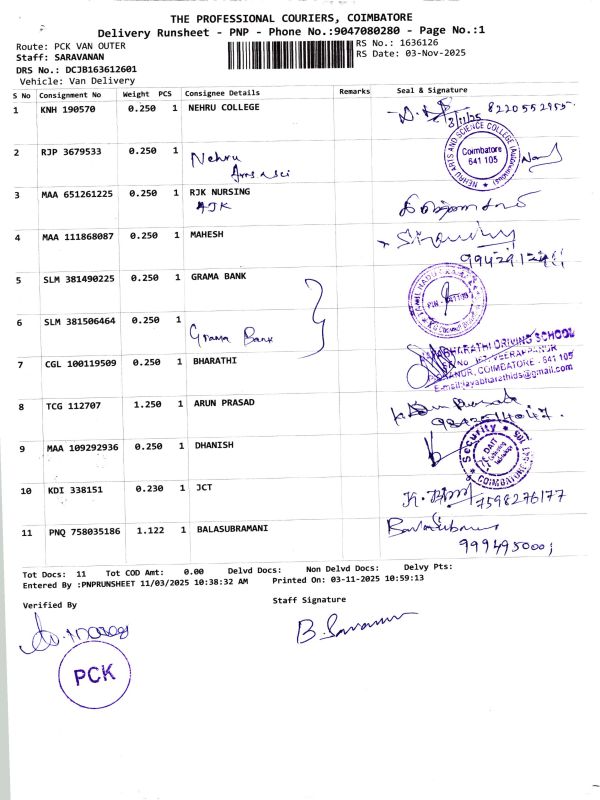 THE PROFESSIONAL COURIERS, COIMBATORE
Delivery Runsheet - PNP - Phone No.:9047080280 - Page No.:1
Route: PCK VAN OUTER
RS No.: 1636126
Staff: SARAVANAN
RS Date: 03-Nov-2025
DRS No.: DCJB163612601
Vehicle: Van Delivery
S No Consignment No Weight PCS Consignee Details Remarks Seal & Signature
1 KNH 190570 0.250 1 NEHRU COLLEGE 8220552955
2 RJP 3679533 0.250 1 Nehru
Arts & Sci
NEHRU ARTS AND SCIENCE COLLEGE (Autonomous)
Coimbatore
641 105
3 MAA 651261225 0.250 1 RJK NURSING
RJK
4 MAA 111868087 0.250 1 MAHESH
5 SLM 381490225 0.250 1 GRAMA BANK
6 SLM 381506464 0.250 1 Grama Bank
7 CGL 100119509 0.250 1 BHARATHI
JAYABHARATHI DRIVING SCHOOL
COIMBATORE - 641 105
E-mail:jayabharathids@gmail.com
8 TCG 112707 1.250 1 ARUN PRASAD
9 MAA 109292936 0.250 1 DHANISH
Security
COIMBATORE
10 KDI 338151 0.230 1 JCT 7598276177
11 PNQ 758035186 1.122 1 BALASUBRAMANI
Tot Docs: 11 Tot COD Amt: 0.00 Delvd Docs: Non Delvd Docs: Delvy Pts:
Entered By :PNPRUNSHEET 11/03/2025 10:38:32 AM Printed On: 03-11-2025 10:59:13
Verified By
Staff Signature
B. Saravanan
PCK